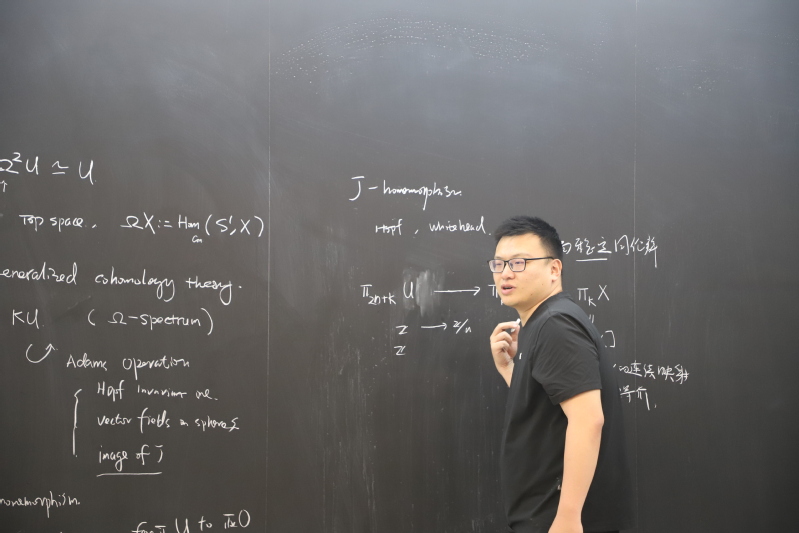 Ω²U ≃ U
↑
Top space, ΩX := Hom(S¹, X)
eneralized cohomology theory.
KU (Ω-spectrum)
Adams operation
Hopf invariant one.
vector fields on spheres
image of J
momorphism
U to π₂O
J-homomorphism
Hopf, Whitehead.
π₂ₙ₊ₖ U → π
Z → Z/n
Z
的稳定同伦群
πₖ X
]
的连续映射
等价.